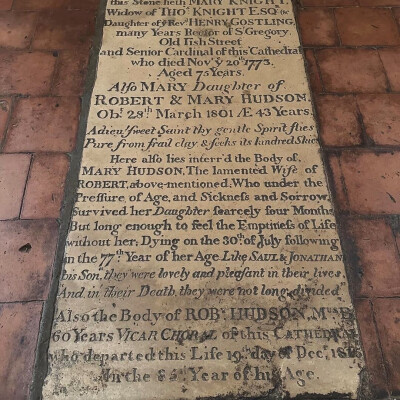 this Stone lieth MARY KNIGHT,
Widow of THOS. KNIGHT ESQR.
Daughter of ye Revd. HENRY GOSTLING,
many Years Rector of St Gregory,
Old Fish Street
and Senior Cardinal of this Cathedral
who died Novr. ye 20th. 1773.
Aged 75 Years.
Also MARY Daughter of
ROBERT & MARY HUDSON,
Obt. 28th. March 1801 Æ 43 Years.
Adieu! sweet Saint thy gentle Spirit flies
Pure from frail clay & seeks its kindred Skies
Here also lies interr'd the Body of,
MARY HUDSON, The lamented Wife of
ROBERT, above-mentioned, Who under the
Pressure of Age, and Sickness and Sorrow,
Survived her Daughter scarcely four Months
But long enough to feel the Emptiness of Life
without her; Dying on the 30th. of July following
in the 77th. Year of her Age Like SAUL & JONATHAN
his Son, they were lovely and pleasant in their lives,
And in their Death, they were not long divided
Also the Body of ROBT. HUDSON, M.B.
60 Years VICAR CHORAL of this CATHEDRAL
who departed this Life 19th. day of Decr.
In the Year of his Age.